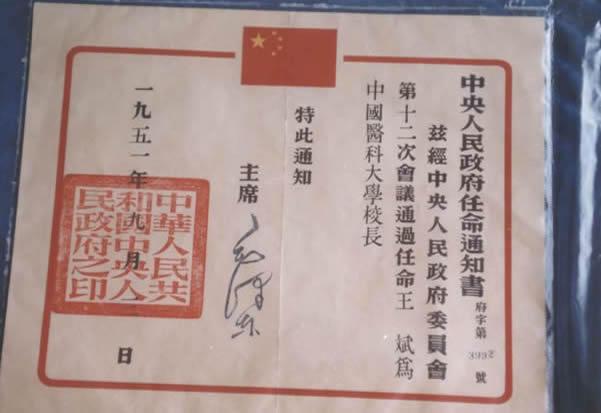 中央人民政府任命通知書
府字第3992號
茲經中央人民政府委員會
第十二次會議通過任命王 斌爲
中國醫科大學校長
特此通知
主席 毛泽东
一九五一年九月 日
中華人民共
和國中央人
民政府之印